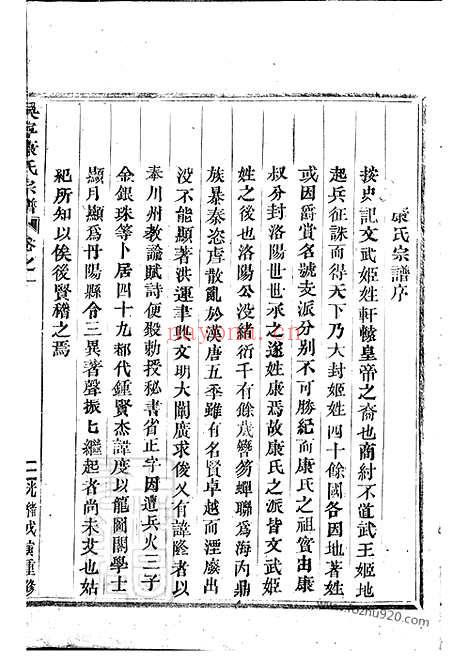 康氏宗譜序
按史記文武姬姓軒轅皇帝之裔也商紂不道武王姬地
起兵征誅而得天下乃大封姬姓四十餘國各因地著姓
或因爵賞名號支派分別不可勝紀而康氏之祖實由康
叔分封洛陽世世承之遂姓康焉故康氏之派皆文武姬
姓之後也洛陽公沒緒衍千有餘歲簪笏蟬聯為海內鼎
族暴秦恣虐散亂於漢唐五季雖有名賢卓越而湮廢出
沒不能顯著洪運聿興文明大闡廣求俊乂有諱隆者以
奉川州教諭賦詩便殿勅授秘書省正字因遭兵火三子
金銀珠等卜居四十九都代鍾賢杰諱度以龍圖閣學士
顯月顯為丹陽縣令三異著聲振七繼起者尚未艾也姑
紀所知以俟後賢稽之焉
吳寧康氏宗譜 卷之一
光緒戊寅重修
nayona.cn
www.fozhu920.com